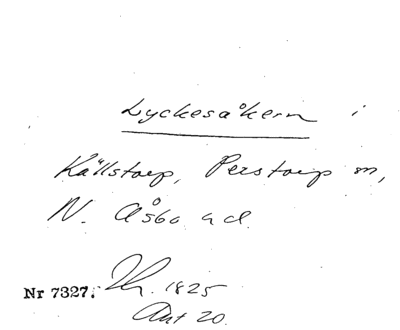 Lyckesåkern i
Källstorp, Perstorp sn,
N. Åsbo hd.
Nr 7327. Th. 1825
Akt 20.